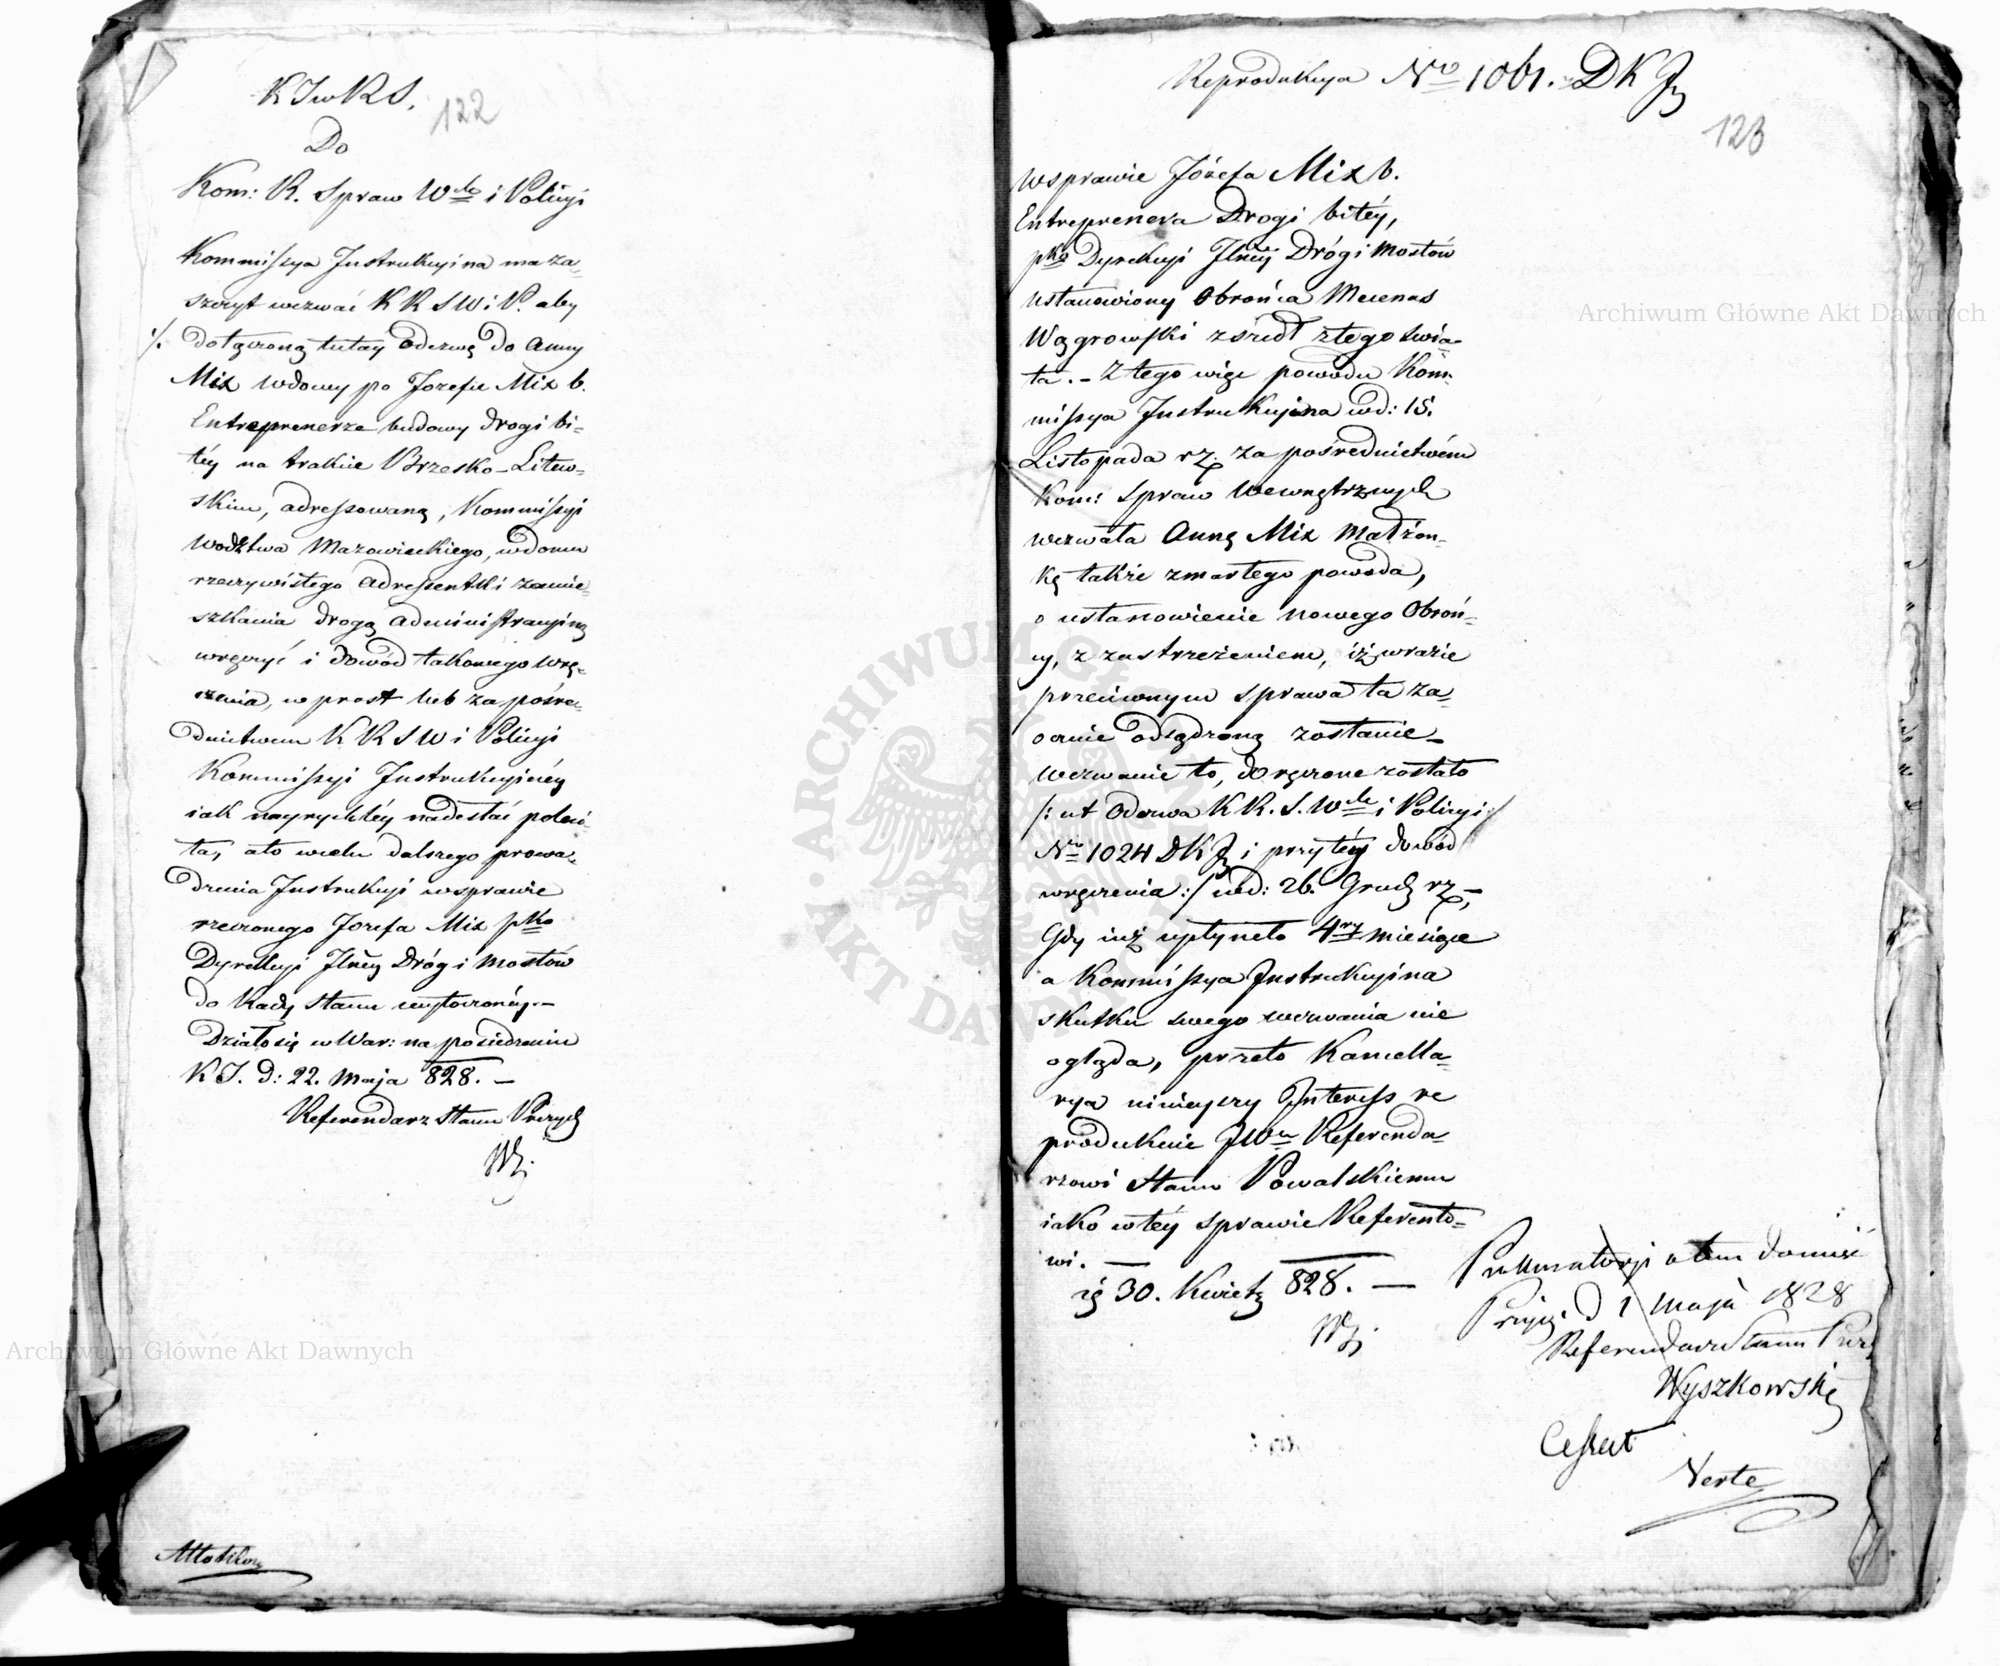 K I w R S.
122
Do
Kom: R. Spraw W<sup>ch</sup> i Policyi
Kommissya Instrukcyina ma za-
szczyt wezwać K R S W i P. aby
./. dołączoną tutay Odezwę do Anny
Mix wdowy po Jozefie Mix b.
Entreprenerze budowy drogi bi-
téy na trakcie Brzesko-Litew-
skim, adressowaną, Kommissyi
Wodztwa Mazowieckiego, w domu
rzeczywistego Adressentki zamie-
szkania drogą administracyiną
wręczyć i dowód takowego wrę-
czenia, w prost lub za pośre-
dnictwem K R S W i Policyi
Kommissyi Instrukcyinéy
iak nayrychléy nadesłać poleci-
ła, a to w celu dalszego prowa-
dzenia Instrukcyi w sprawie
rzeczonego Jozefa Mix pko
Dyrekcyi Jlnéy Dróg i Mostów
do Rady Stanu wytoczonéy.-
Działo się w War: na posiedzeniu
K I. d: 22. Maja 828. -
Referendarz Stanu Prezyd
Reprodukcya No 1061. D K J
123
w sprawie Józefa Mix b.
Entreprenera Drogi bitéy,
pko Dyrekcyi Jlnéy Dróg i Mostów
ustanowiony Obrońca Mecenas
Wągrowski zszedł z tego świa-
ta. - Z tego więc powodu Kom-
missya Instrukcyina w d: 15.
Listopada r z. za pośrednictwém
Kom: Spraw Wewnętrznych
wezwała Annę Mix Małżon-
kę także zmarłego powoda,
o ustanowienie nowego Obroń-
cy, z zastrzeżeniem, iż w razie
przeciwnym sprawa ta za-
ocznie odsądzoną zostanie -
Wezwanie to, doręczone zostało
/: ut Odezwa K R. S. W<sup>ch</sup> i Policyi
No 1024 D K J i przy téy dowód
wręczenia :/ w d: 26. Grud rz -,
Gdy iuż upłyneło 4ry miesiące
a Kommissya Instrukcyina
skutku swego wezwania nie
ogląda, przeto Kancella-
rya ninieyszy Interess re
produkuie JWu Referenda-
rzowi Stanu Powalskiemu
iako w téy sprawie Referento-
wi. -
30. Kwiet 828. -
Prokuratoryi o tem donieść
d 1 Maja 1828
Referendarz Stanu Prez
Wyszkowski
Nerte
Archiwum Główne Akt Dawnych
Archiwum Główne Akt Dawnych
ARCHIWUM GŁÓWNE AKT DAWNYCH